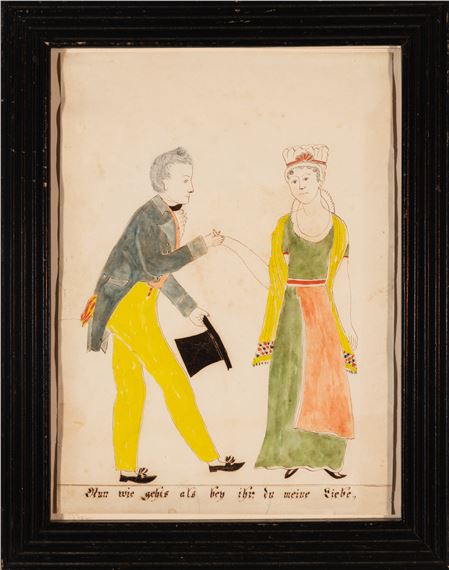 Nun wie gehts als bey ihr du meine Liebe,